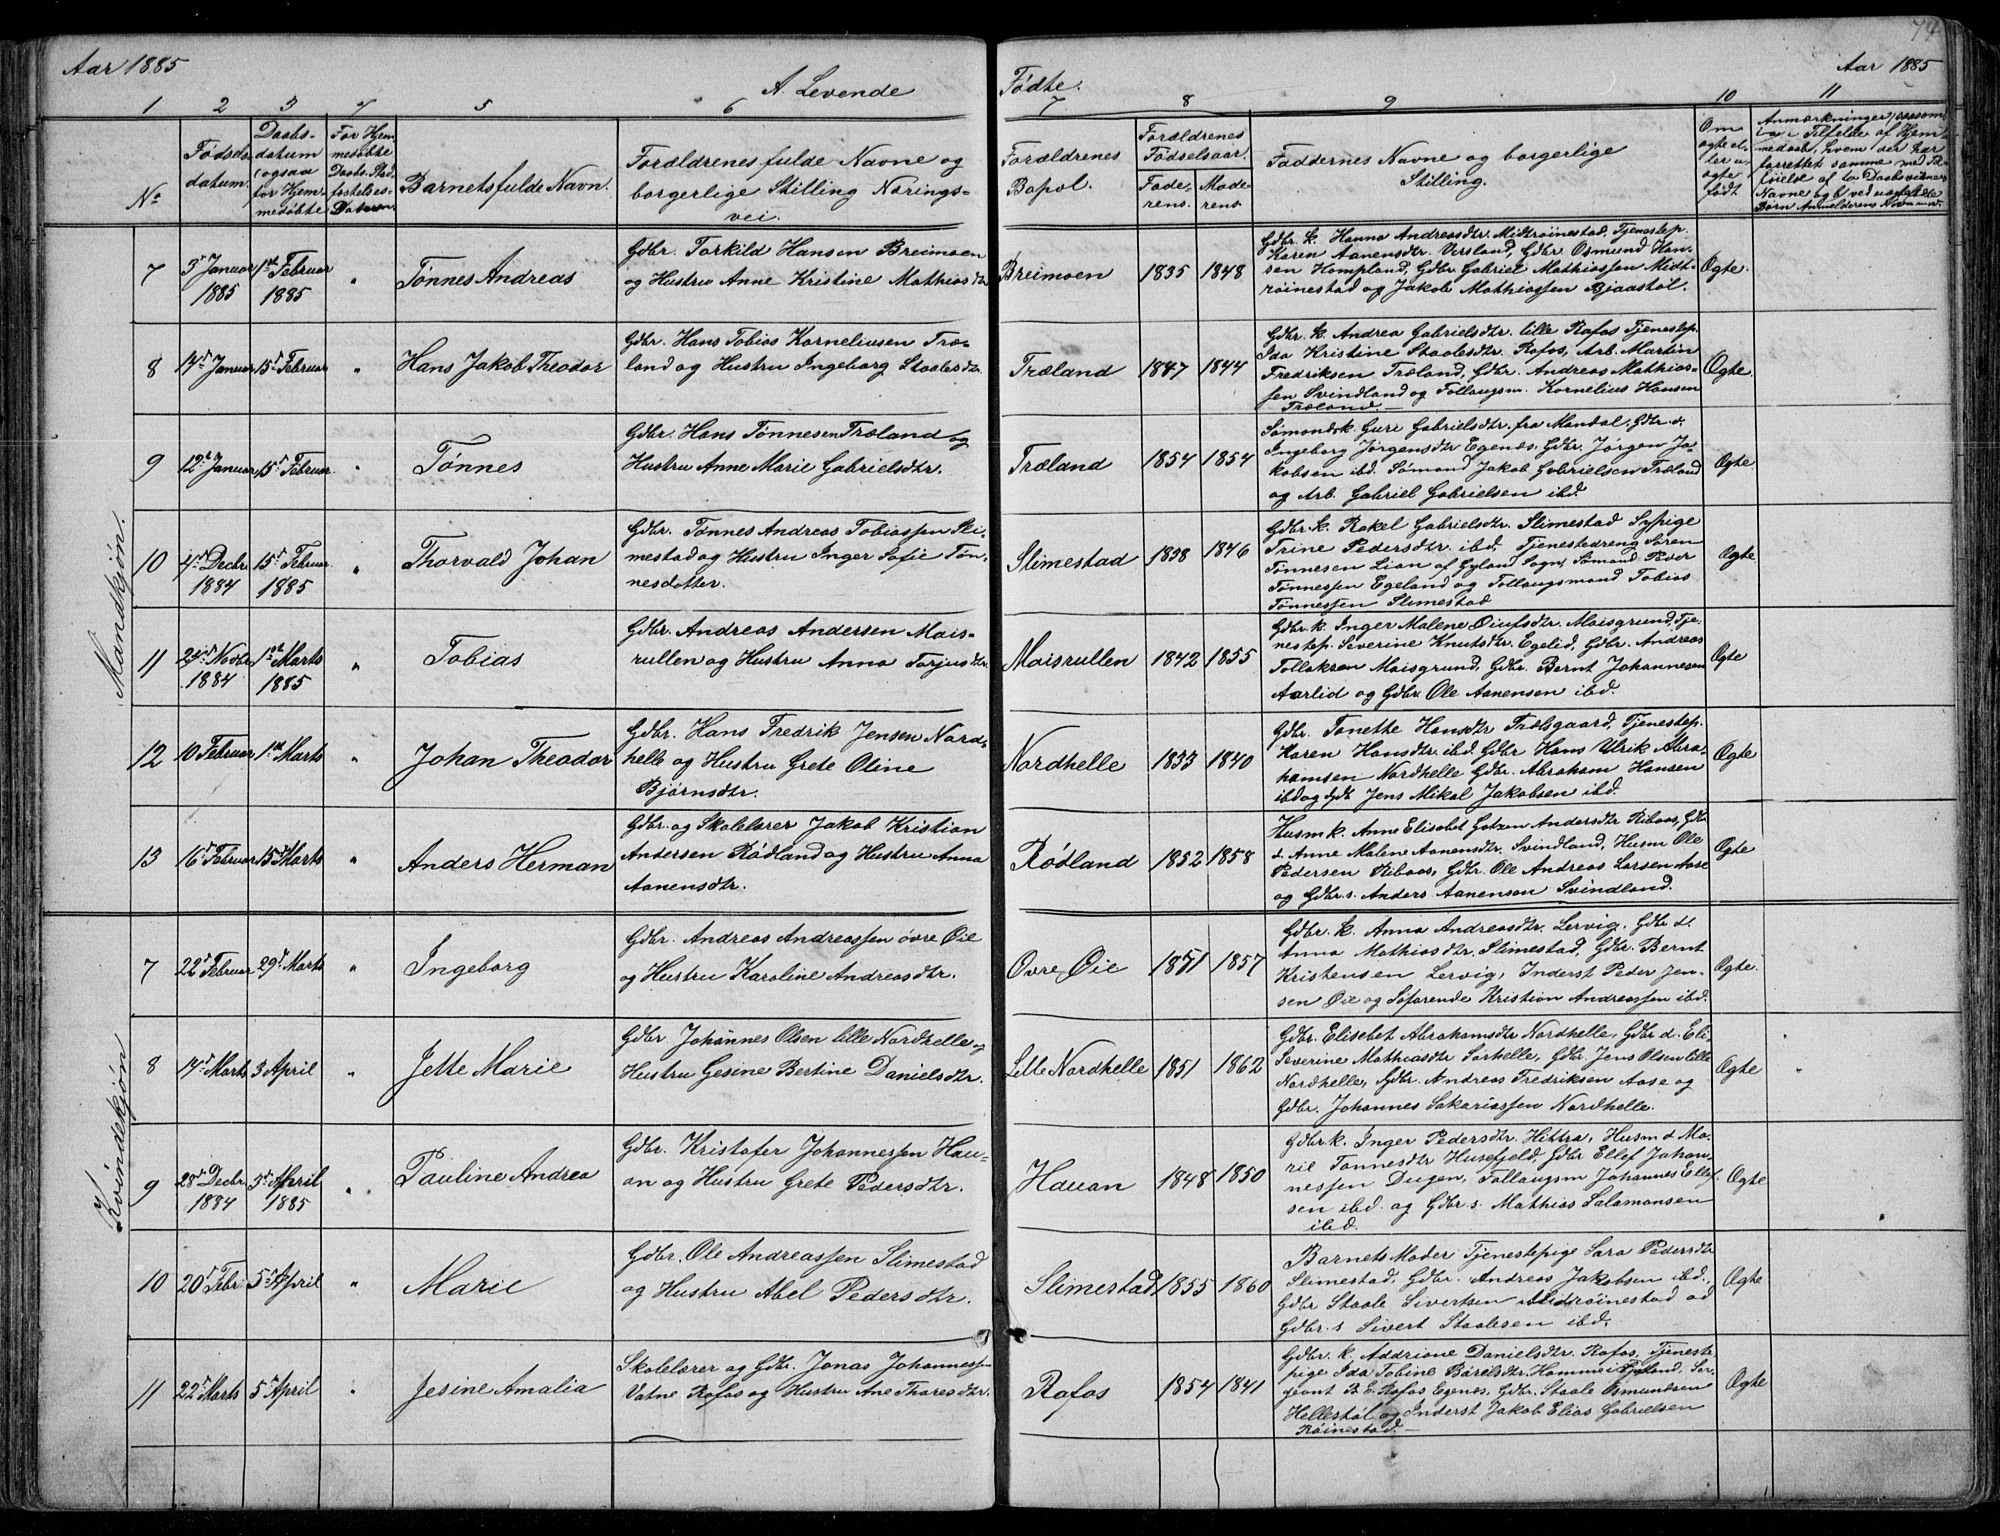 74
Aar 1885
A. Levende
Fødte.
Aar 1885
1 2 3 4 5 6 7 8 9 10 11
No
Fødsels
datum.
Daabs-
datum
(ogsaa
for Hjem-
medøbte
For Hjem-
medøbte
Daabs Stad-
fæstelses-
Datum.
Barnets fulde Navn.
Forældrenes fulde Navne og
borgerlige Stilling Nærings-
vei.
Forældrenes
Bopæl.
Forældrenes
Fødselsaar.
Fade-
rens.
Mode-
rens.
Faddernes Navne og borgerlige
Stilling.
Om
ægte el-
ler u-
ægte
født
Anmærkninger, saasom
i Tilfælde af Hjem-
medaab, hvem der har
forrettet samme med Til-
føielse af to Daabsvidners
Navne og ved uægtefødte
Børn Anmelderens Navn
Mandkjøn.
7 3die Januar 1ste Februar " Tønnes Andreas
1885 1885
Gdbr. Torkild Hansen Breimoen
og Hustru Anne Kristine Mathiasdtr.
Breimoen 1835 1848
Gdbr. k. Hanna Andreasdtr. Midtrøinestad, Tjenestep.
Karen Aanensdtr. Versland, Gdbr. Osmund Han-
sen Hompland, Gdbr. Gabriel Mathiassen Midt-
røinestad og Jakob Mathiassen Bjaastøl.
Ægte.
8 14de Januar 15de Februar " Hans Jakob Theodor
Gdbr. Hans Tobias Korneliusen Træ-
land og Hustru Ingeborg Staalesdtr.
Træland 1847 1844
Gdbr. k. Andrea Gabrielsdtr. lille Rafos Tjenestep.
Ida Kristine Staalesdtr. Rafos, Arb. Martin
Fredriksen Træland, Gdbr. Andreas Mathias-
sen Svindland og Follaugsm. Kornelius Hansen
Træland.
Ægte.
9 12te Januar 15de Februar. " Tønnes
Gdbr. Hans Tønnesen Træland og
Hustru Anne Marie Gabrielsdtr.
Træland 1854 1854
Sømandsk. Guri Gabrielsdtr. fra Mandal, Gdbr. d.
Ingeborg Jørgensdtr Egenæs, Gdbr. Jørgen Ja-
kobsen ibd. Sømand Jakob Gabrielsen Træland
og Arb. Gabriel Gabrielsen ibd.
Ægte
10 4de Decbr. 15de Februar " Thorvald Johan
1884 1885
Gdbr. Tønnes Andreas Tobiassen Sli-
mestad og Hustru Inger Sofie Tøn-
nesdatter.
Slimestad 1838 1846
Gdbr. k. Rakel Gabrielsdtr. Slimestad Sypige
Trine Pedersdtr. ibd, Tjenestedreng Søren
Tønnesen Lian af Gyland Sogn, Sømand Peder
Tønnessen Egeland og Follaugsmand Tobias
Tønnessen Slimestad
Ægte
11 24de Novbr. 1ste Marts " Tobias
1884 1885
Gdbr. Andreas Andersen Mais-
rullen og Hustru Anna Torjusdtr.
Maisrullen 1842 1855
Gdbr. k. Inger Malene Oiufsdtr. Maisgrund, Tje-
nestep. Severine Knutsdtr. Egelid, Gdbr. Andreas
Tollaksen Maisgrund, Gdbr. Bernt Johannesen
Aarlid og Gdbr. Ole Aanensen ibd.
Ægte
12 10 Februar 1ste Marts " Johan Theodor
Gdbr. Hans Fredrik Jensen Nord-
helle og Hustru Grete Oline
Bjørnsdtr.
Nordhelle 1833 1840
Gdbr. Tonette Hansdtr Trælsgaard, Tjenestep.
Karen Hansdtr. ibd. Gdbr Hans Ulrik Abra-
hamsen Nordhelle Gdbr. Abraham Hansen
ibd og Jens Mikal Jakobsen ibd.
Ægte
13 16de Februar 15de Marts " Anders Herman
Gdbr. og Skolelærer Jakob Kristian
Andersen Rødland og Hustru Anna
Aanensdtr.
Rødland 1852 1858
Husm k. Anne Elisebet Andersdtr Riboas, Gdbr
d. Anne Malene Aanensdtr. Svindland, Husm Ole
Pedersen Riboas, Gdbr. Ole Andreas Larsen Aase
og Gdbr. s. Anders Aanensen Svindland.
Ægte
Kvindekjøn
7 22de Februar 29de Marts " Ingeborg
Gdbr. Andreas Andreassen øvre Øie
og Hustru Karoline Andreasdtr.
Øvre Øie 1851 1857
Gdbr. k. Anna Andreasdtr. Lervig, Gdbr d.
Anna Mathiasdtr. Slimestad, Gdbr. Bernt
Kristensen Lervig, Inderst Peder Jen-
sen Øie og Søfarende Kristian Andreassen ibd.
Ægte.
8 14de Marts 3 April " Jette Marie
Gdbr. Johannes Olsen lille Nordhelle og
Hustru Gesine Bertine Danielsdtr.
Lille Nordhelle 1851 1862
Gdbr. Elisebet Abrahamsdtr Nordhelle, Gdbr d. Eli
Severine Mathiasdtr Sørhelle, Gdbr. Jens Olsen lille
Nordhelle, Gdbr. Andreas Fredriksen Aase og
Gdbr. Johannes Sakariassen Nordhelle.
Ægte
9 28de Decbr. 5te April " Pauline Andrea
1884 1885
Gdbr. Kristofer Johannessen Hau-
an og Hustru Grete Pedersdtr.
Hauan 1848 1850
Gdbr. k. Inger Pedersdtr. Hittra, Husm d Ma-
ril Tønnesdtr Husefjeld, Gdbr Ellef Johan-
nessen Dugan, Follaugsm Johannes Ellef-
sen ibd. og Gdbr. s. Mathias Salamonsen
ibd.
Ægte
10 20de Febr. 5te April " Marie
Gdbr. Ole Andreassen Slimestad
og Hustru Abel Pedersdtr.
Slimestad 1855 1860
Barnets Moder Tjenestepige Sara Pedersdtr
Slimestad, Gdbr. Andreas Jakobsen ibd.,
Gdbr Staale Sivertsen Midtrøinestad og
Gdbr. s Sivert Staalesen ibd.
Ægte
11 22de Marts 5te April " Jesine Amalia
Skolelærer og Gdbr. Jonas Johannessen
Vatne Rafos og Hustru Ane Tharesdtr.
Rafos 1854 1841
Gdbr. k. Addriane Danielsdtr. Rafos, Tjeneste-
pige Ida Tobine Bårelsdtr. Homme i Bjelland, Ser-
geant B. E. Rafos Egenæs, Gdbr. Staale Osmundsen
Hellestøl og Inderst Jakob Elias Gabrielsen
Røinestad.
Ægte